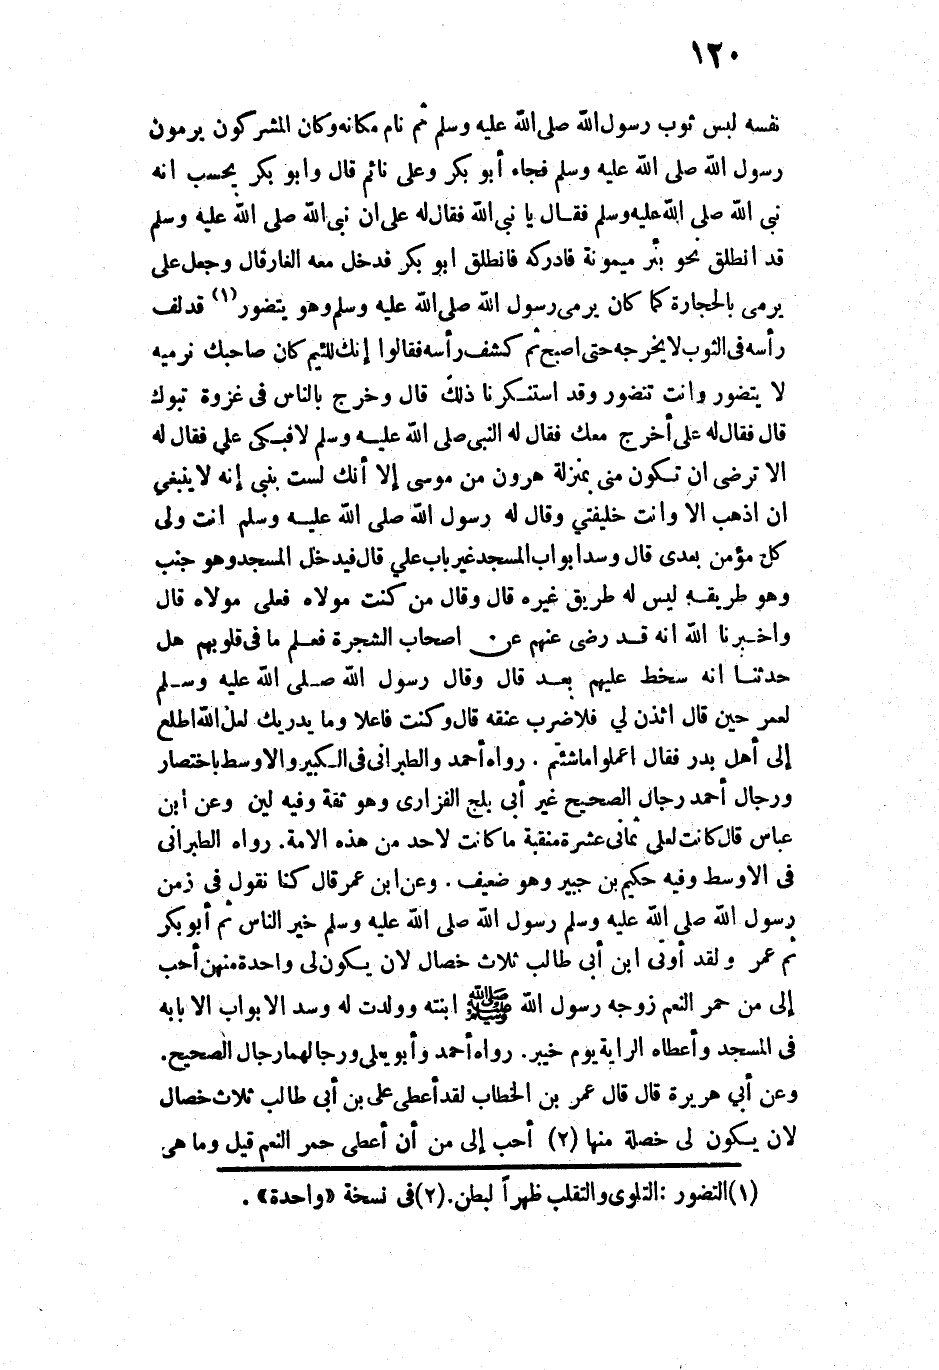 ١٢٠
نفسه لبس ثوب رسول الله صلى الله عليه وسلم ثم نام مكانه وكان المشركون يرمون
رسول الله صلى الله عليه وسلم فجاء أبو بكر وعلى نائم قال وابو بكر يحسب انه
نبى الله صلى الله عليه وسلم فقال يا نبى الله فقال له على ان نبى الله صلى الله عليه وسلم
قد انطلق نحو بئر ميمونة فادركه فانطلق ابو بكر فدخل معه الغار قال وجعل على
يرمى بالحجارة كما كان يرمى رسول الله صلى الله عليه وسلم وهو يتضور (١) قد لف
رأسه فى الثوب لا يخرجه حتى اصبح ثم كشف رأسه فقالوا إنك للئيم كان صاحبك نرميه
لا يتضور وانت تتضور وقد استنكرنا ذلك قال وخرج بالناس فى غزوة تبوك
قال فقال له على أخرج معك فقال له النبى صلى الله عليه وسلم لا فبكى علي فقال له
الا ترضى ان تكون منى بمنزلة هرون من موسى إلا أنك لست بنبى إنه لا ينبغي
ان اذهب الا وانت خليفتي وقال له رسول الله صلى الله عليه وسلم انت ولى
كل مؤمن بعدى قال وسد ابواب المسجد غير باب علي قال فيدخل المسجد وهو جنب
وهو طريقه ليس له طريق غيره قال وقال من كنت مولاه فعلى مولاه قال
واخبرنا الله انه قد رضى عنهم عن اصحاب الشجرة فعلم ما فى قلوبهم هل
حدثنا انه سخط عليهم بعد قال وقال رسول الله صلى الله عليه وسلم
لعمر حين قال ائذن لي فلاضرب عنقه قال وكنت فاعلا وما يدريك لعل الله اطلع
إلى أهل بدر فقال اعملوا ماشئتم . رواه أحمد والطبرانى فى الكبير والاوسط باختصار
ورجال أحمد رجال الصحيح غير أبى بلج الفزارى وهو ثقة وفيه لين وعن ابن
عباس قال كانت لعلي ثمانى عشرة منقبة ما كانت لاحد من هذه الامة. رواه الطبرانى
فى الاوسط وفيه حكيم بن جبير وهو ضعيف . وعن ابن عمر قال كنا نقول فى زمن
رسول الله صلى الله عليه وسلم رسول الله صلى الله عليه وسلم خير الناس ثم أبو بكر
ثم عمر ولقد أوتى ابن أبى طالب ثلاث خصال لان يكون لى واحدة منهن أحب
إلى من حمر النعم زوجه رسول الله ﷺ ابنته وولدت له وسد الابواب الا بابه
فى المسجد وأعطاه الراية يوم خيبر. رواه أحمد وأبو يعلى ورجالهما رجال الصحيح.
وعن أبي هريرة قال قال عمر بن الخطاب لقد أعطى على بن أبى طالب ثلاث خصال
لان يكون لى خصلة منها (٢) أحب إلى من أن أعطى حمر النعم قيل وما هى
(١) التضور : التلوى والتقلب ظهراً لبطن. (٢) فى نسخة «واحدة» .